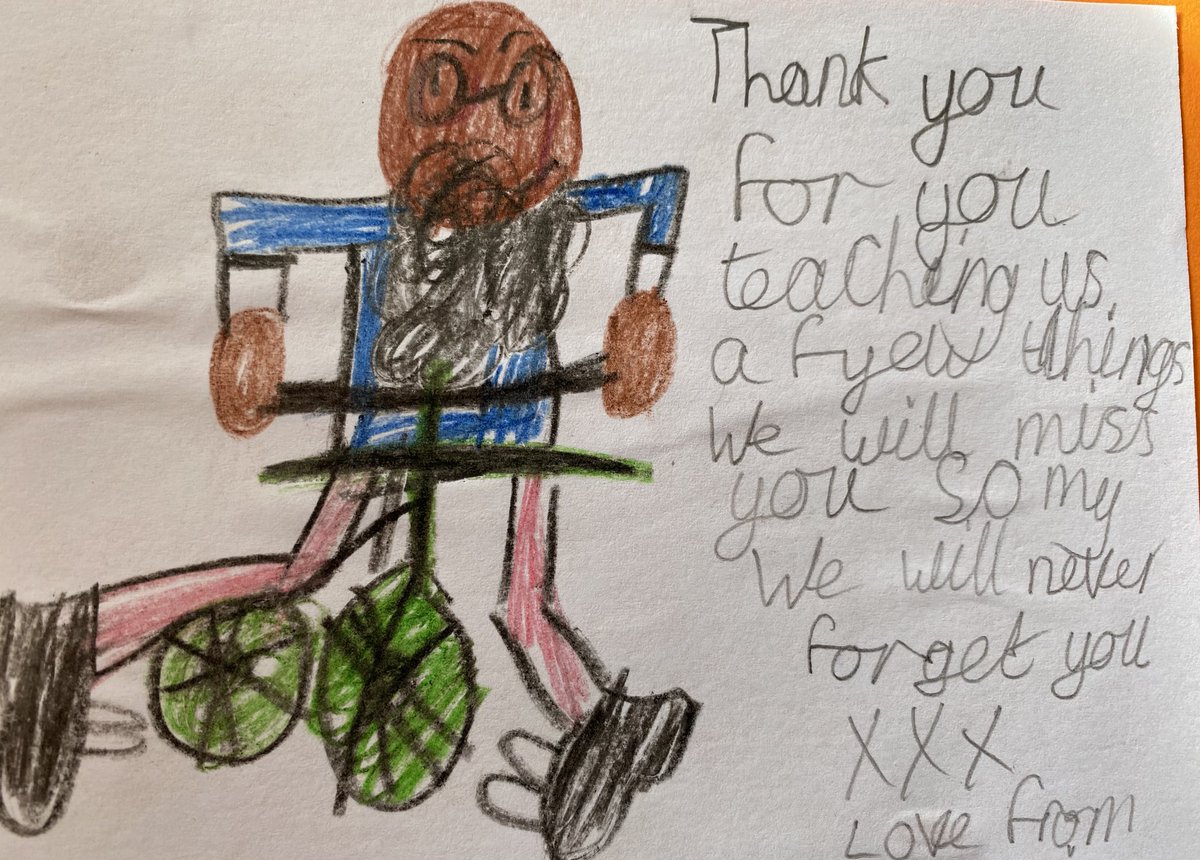 Thank you
for you
teaching us
a fyew things
We will miss
you so my
We will never
forget you
XXX
Love from